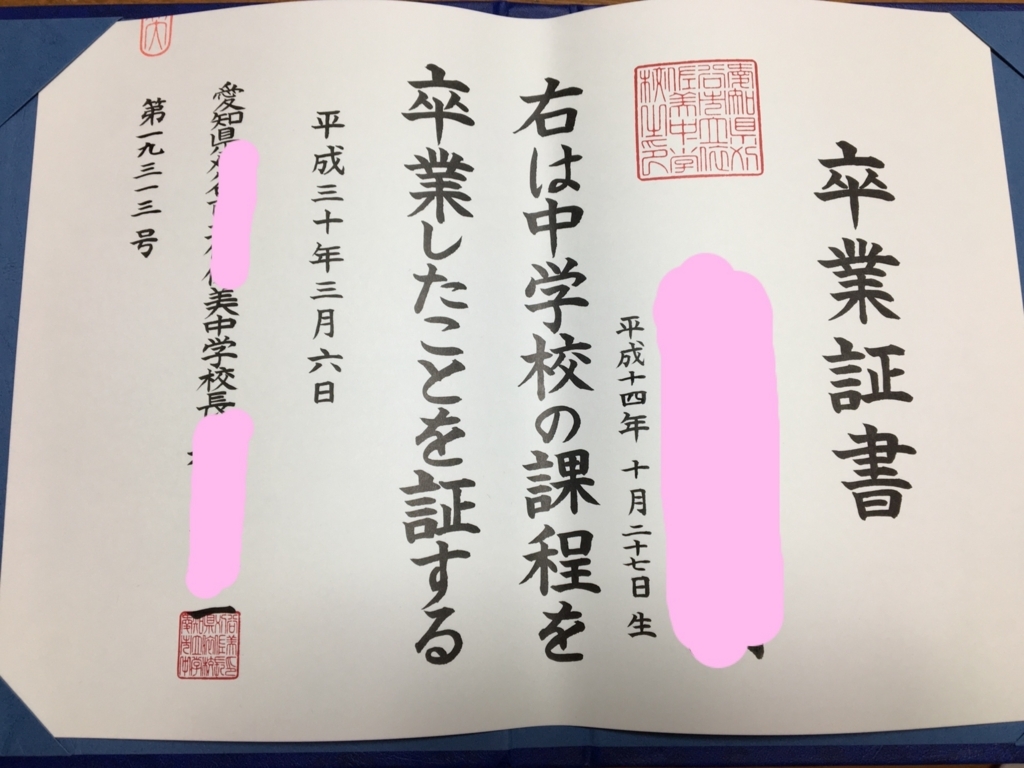 卒業証書
平成十四年 十月二十七日 生
右は中学校の課程を
卒業したことを証する
平成三十年三月六日
愛知県
美中学校長
第一九三一三号